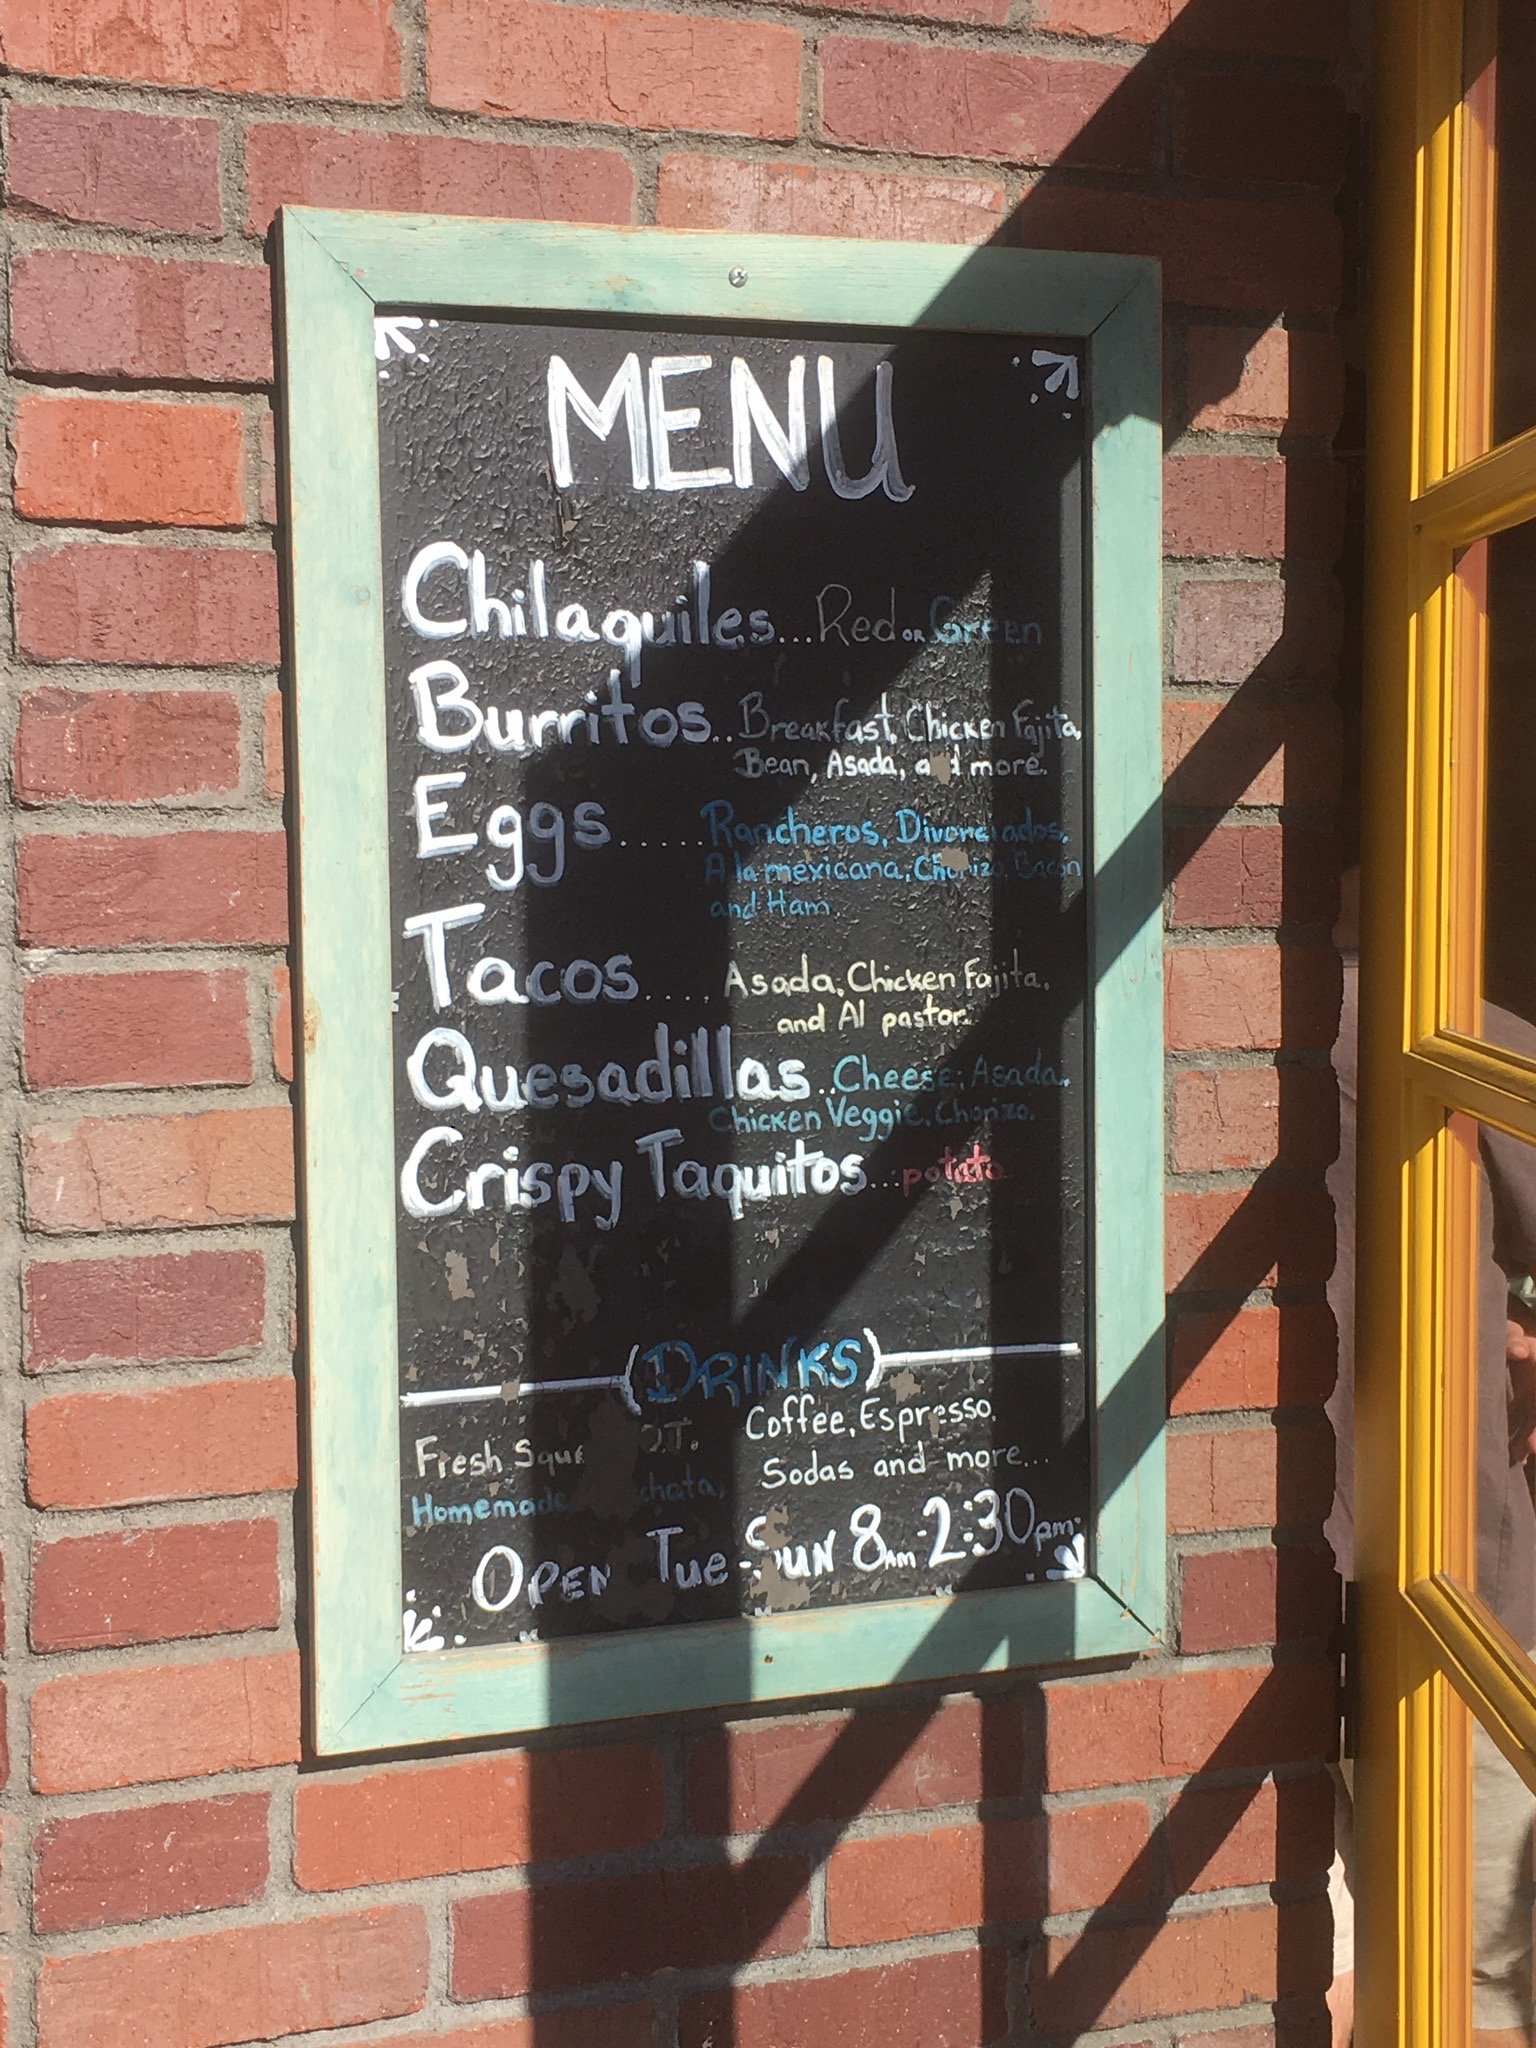 MENU
Chilaquiles...Red or Green
Burritos..Breakfast, Chicken Fajita,
Bean, Asada, and more.
Eggs......Rancheros, Divorciados,
A la mexicana, Chorizo, Bacon
and Ham.
Tacos....Asada, Chicken Fajita,
and Al pastor.
Quesadillas..Cheese, Asada,
Chicken Veggie, Chorizo.
Crispy Taquitos...potato
(DRINKS)
Fresh O.T. Coffee, Espresso,
Homemade Sodas and more...
OPEN Tue-SUN 8AM-2:30pm